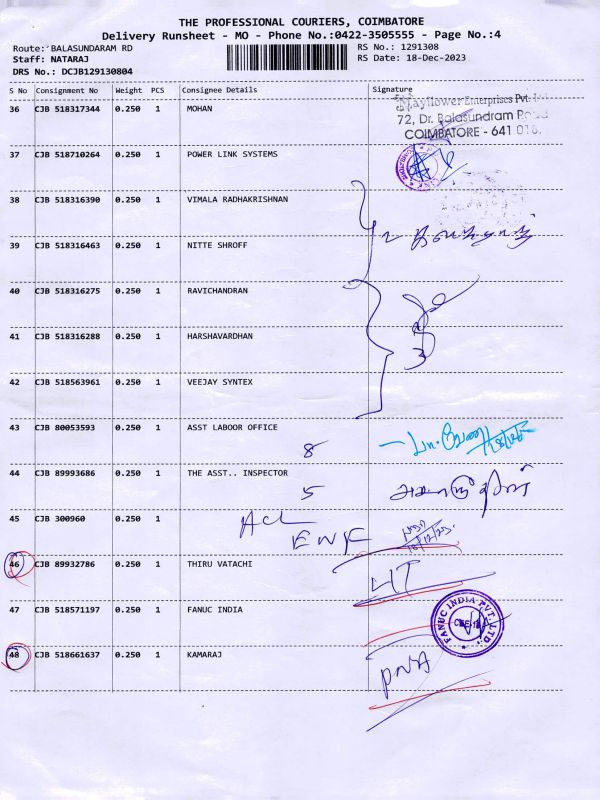 THE PROFESSIONAL COURIERS, COIMBATORE
Delivery Runsheet - MO - Phone No.:0422-3505555 - Page No.:4
Route: BALASUNDARAM RD RS No.: 1291308
Staff: NATARAJ RS Date: 18-Dec-2023
DRS No.: DCJB129130804
S No Consignment No Weight PCS Consignee Details Signature
36 CJB 518317344 0.250 1 MOHAN
Mayflower Enterprises Pvt. Ltd
72, Dr. Balasundram Road
COIMBATORE - 641 018.
37 CJB 518710264 0.250 1 POWER LINK SYSTEMS
38 CJB 518316390 0.250 1 VIMALA RADHAKRISHNAN
39 CJB 518316463 0.250 1 NITTE SHROFF
40 CJB 518316275 0.250 1 RAVICHANDRAN
41 CJB 518316288 0.250 1 HARSHAVARDHAN
3
42 CJB 518563961 0.250 1 VEEJAY SYNTEX
43 CJB 80053593 0.250 1 ASST LABOOR OFFICE
8
44 CJB 89993686 0.250 1 THE ASST.. INSPECTOR
5
45 CJB 300960 0.250 1 ACL
46 CJB 89932786 0.250 1 THIRU VATACHI
47 CJB 518571197 0.250 1 FANUC INDIA
FANUC INDIA PVT. LTD.
48 CJB 518661637 0.250 1 KAMARAJ
PNA